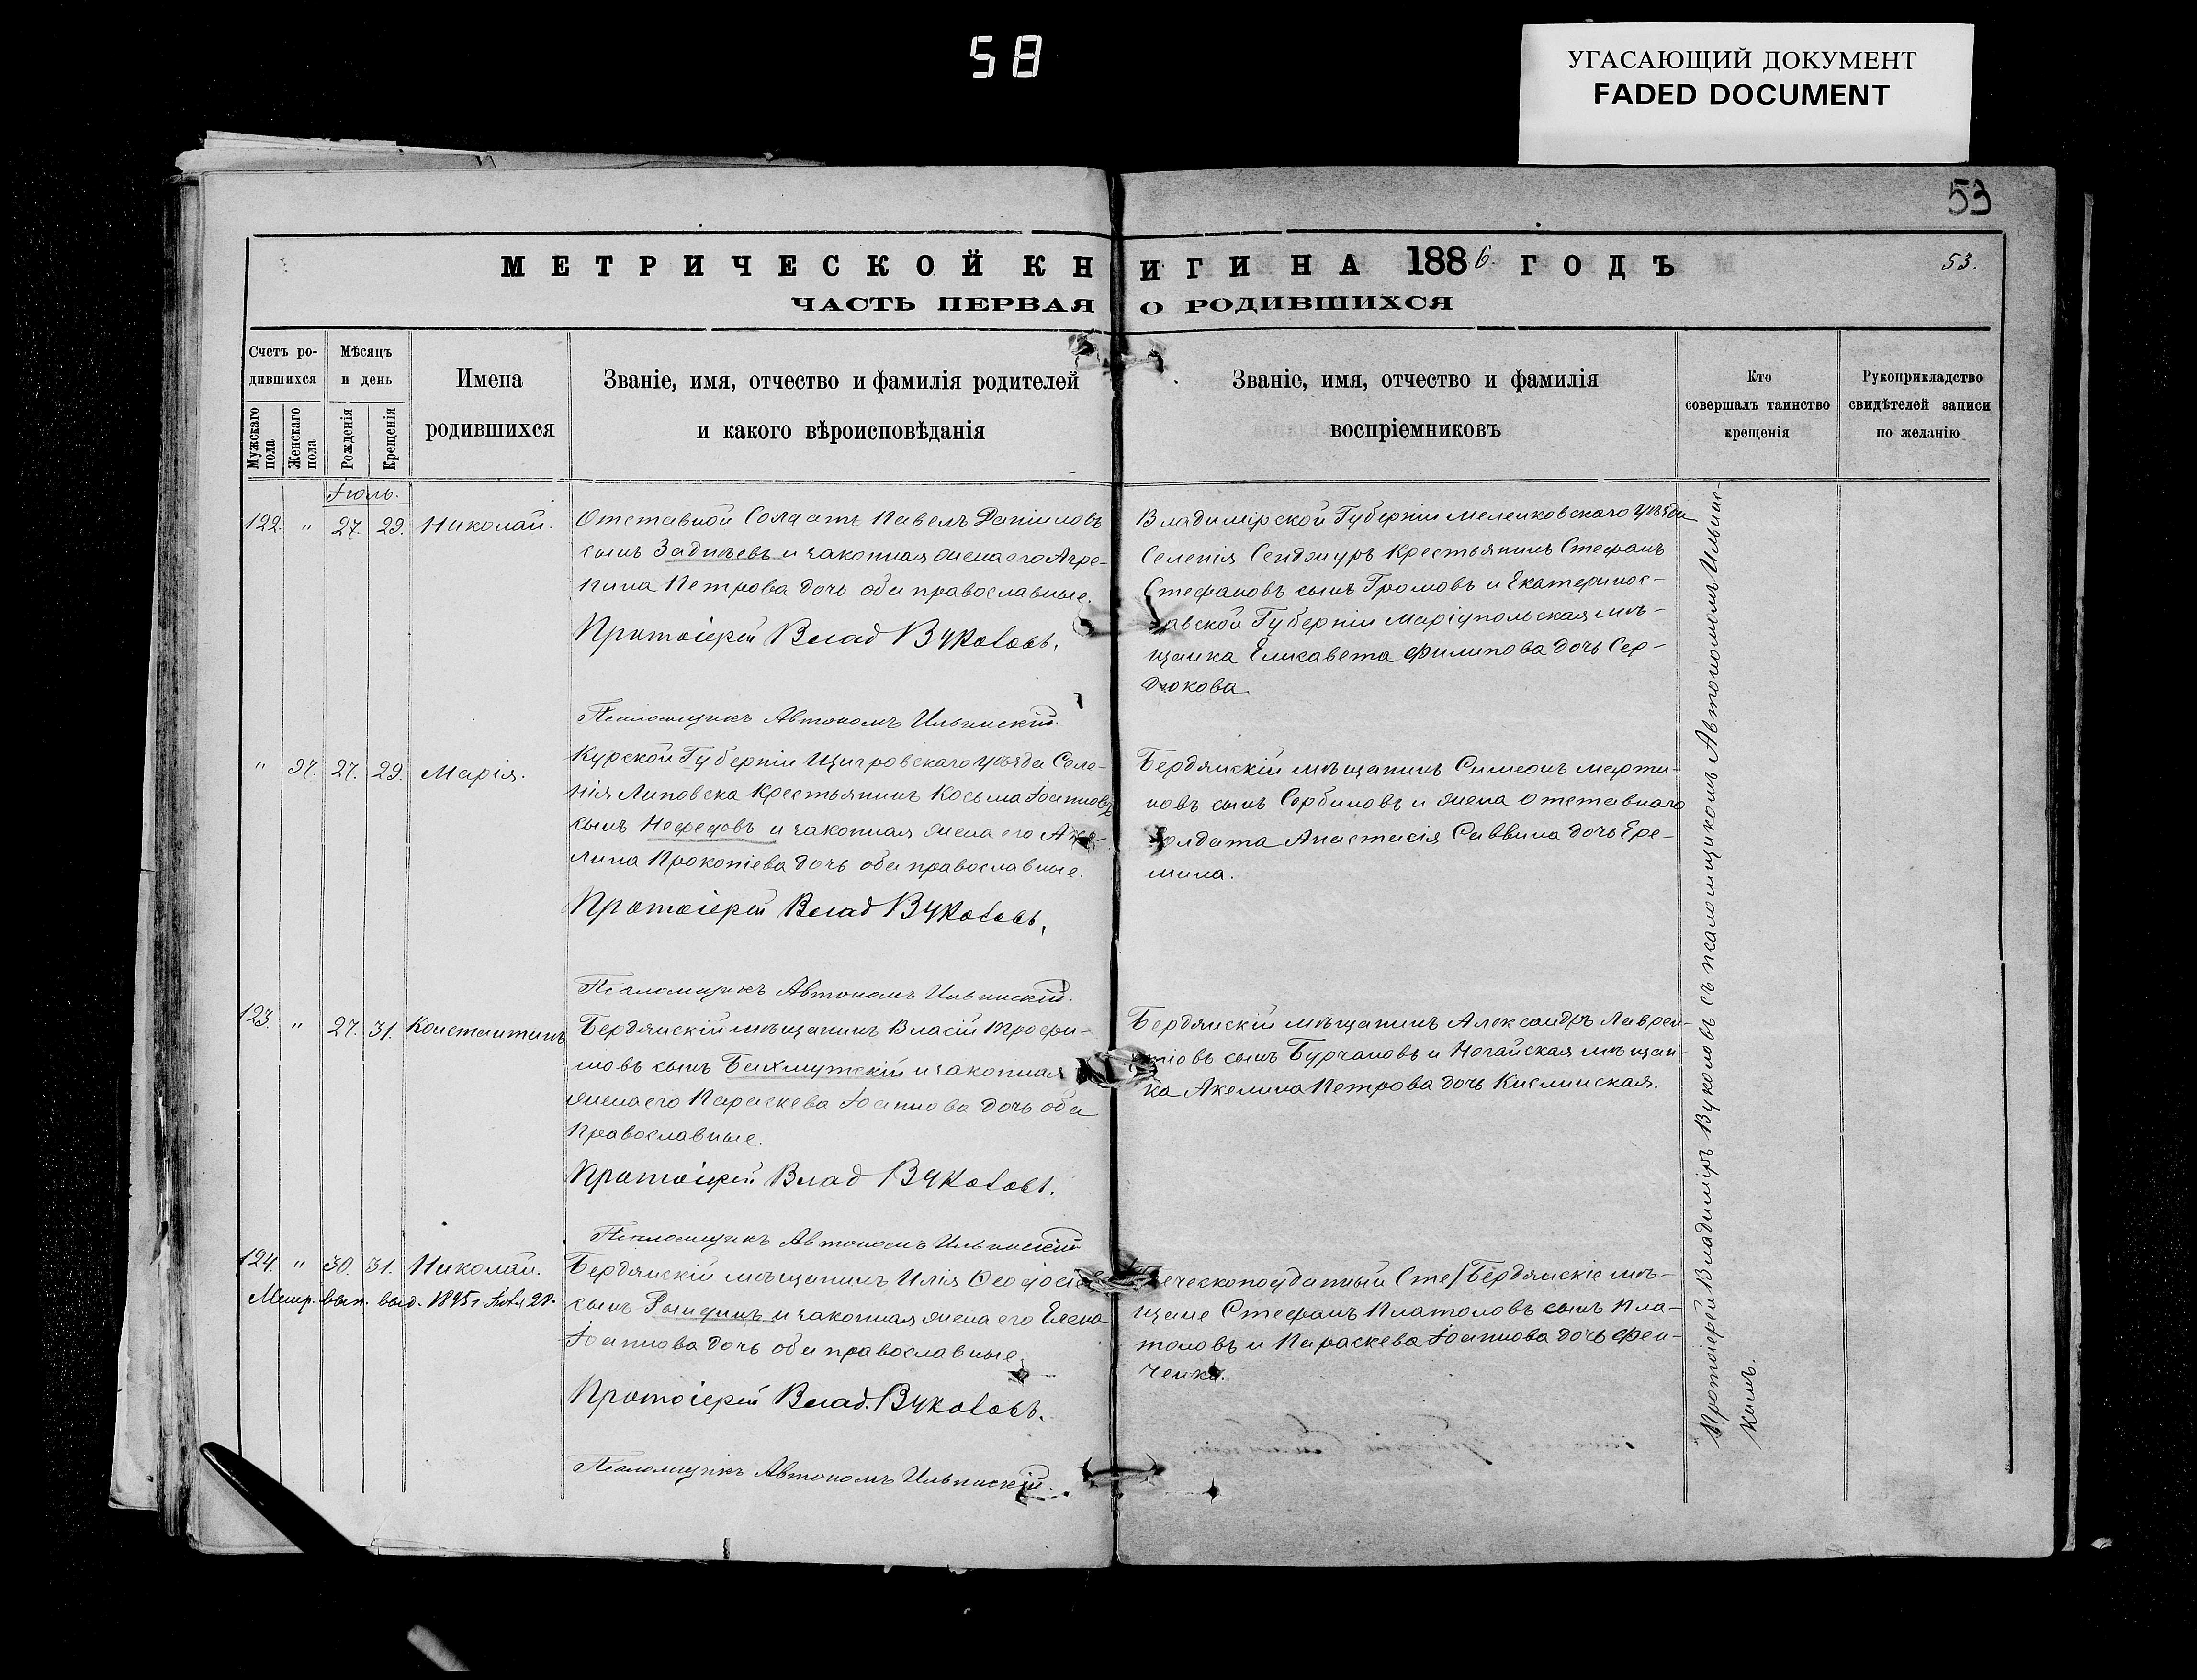 58
УГАСАЮЩИЙ ДОКУМЕНТ
FADED DOCUMENT
53
МЕТРИЧЕСКОЙ КНИГИ НА 1886. ГОДЪ
53.
ЧАСТЬ ПЕРВАЯ О РОДИВШИХСЯ
Счетъ ро-
дившихся
Мужскаго пола
Женскаго пола
Мѣсяцъ
и день
Рожденія
Крещенія
Имена
родившихся
Званіе, имя, отчество и фамилія родителей
и какого вѣроисповѣданія
Званіе, имя, отчество и фамилія
воспріемниковъ
Кто
совершалъ таинство
крещенія
Рукоприкладство
свидѣтелей записи
по желанію
Іюль.
122. " 27. 29. Николай.
Отставной Солдатъ Павелъ Даниловъ
сынъ Задпѣевъ и законная жена его Агре-
пина Петрова дочь оба православные.
Протоіерей Влад Вуколовъ.
Псаломщикъ Автономъ Ильинскій.
Владимірской Губерніи Меленковскаго уѣзда
Селенія Сенджуръ Крестьянинъ Стефанъ
Стефановъ сынъ Громовъ и Екатеринос-
лавской Губерніи Маріупольская мѣ-
щанка Елисавета Филипова дочь Сер-
дюкова.
" 97. 27. 29. Марія.
Курской Губерніи Щигровскаго уѣзда Селе-
нія Липовска Крестьянинъ Косьма Іоанновъ
сынъ Нефедовъ и законная жена его Аке-
лина Прокопіева дочь оба православные.
Протоіерей Влад Вуколовъ.
Псаломщикъ Автономъ Ильинскій.
Бердянскій мѣщанинъ Симеонъ Марти-
новъ сынъ Сербиновъ и жена отставнаго
солдата Анастасія Саввина дочь Ере-
мина.
123. " 27. 31. Константинъ
Бердянскій мѣщанинъ Власій Трофи-
мовъ сынъ Бахмутскій и законная
жена его Параскева Іоаннова дочь оба
православные.
Протоіерей Влад Вуколовъ.
Псаломщикъ Автономъ Ильинскій
Бердянскій мѣщанинъ Александръ Лаврен-
тіовъ сынъ Бурчановъ и Ногайская мѣщан-
ка Акелина Петрова дочь Кислинская.
124. " 30. 31. Николай.
Метр. вып. выд. 1895 г. 28.
Бердянскій мѣщанинъ Илія Ѳеодосіевъ
сынъ и законная жена его Елена
Іоаннова дочь оба православные.
Протоіерей Влад. Вуколовъ.
Псаломщикъ Автономъ Ильинскій
Греческоподданный Сте/Бердянскіе мѣ-
щане Стефанъ Платоновъ сынъ Пла-
тоновъ и Параскева Іоаннова дочь Фен-
ченко.
Протоіерей Владиміръ Вуколовъ съ псаломщикомъ Автономомъ Ильинс-
кимъ.